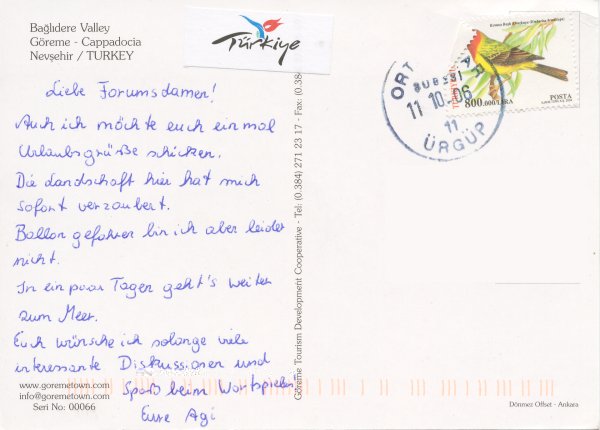 Bağlıdere Valley
Göreme - Cappadocia
Nevşehir / TURKEY
Türkiye
ORT
ŞUBESİ
11 10. 06
11
ÜRGÜP
800.000 LİRA
POSTA
Liebe Forumsdamen!
Auch ich möchte euch einmal
Urlaubsgrüße schicken.
Die Landschaft hier hat mich
sofort verzaubert.
Ballon gefahren bin ich aber leider
nicht.
In ein paar Tagen geht's weiter
zum Meer.
Euch wünsche ich solange viele
interessante Diskussionen und
Spaß beim Wortspielen!
Eure Agi
www.goremetown.com
info@goremetown.com
Seri No: 00066
Göreme Tourism Development Cooperative - Tel: (0.384) 271 23 17 - Fax: (0.384)
Dönmez Ofset - Ankara